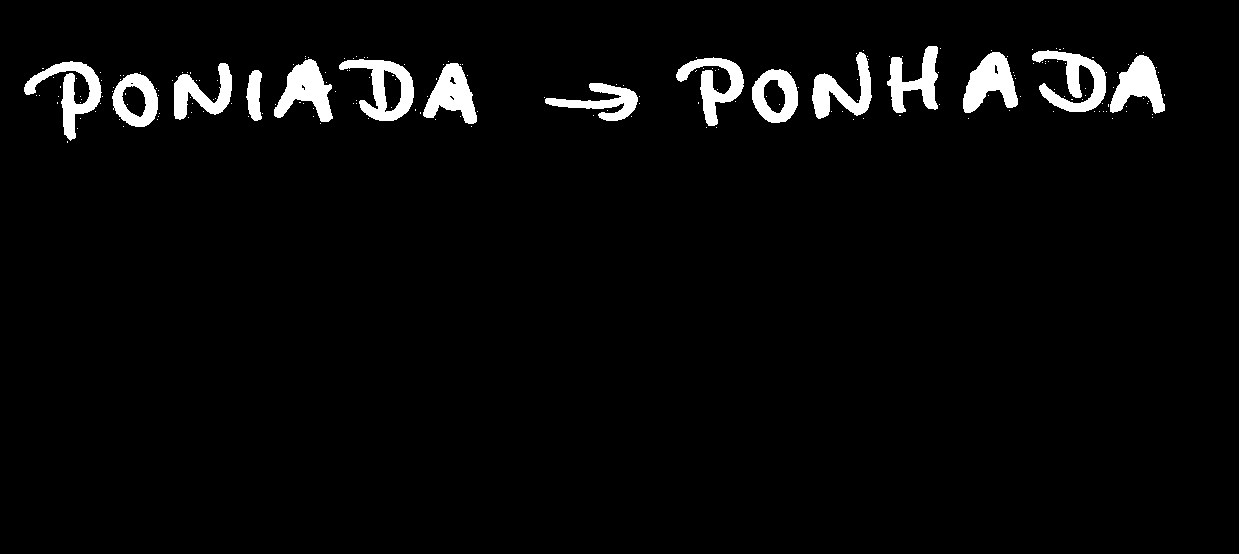 PONIADA → PONHADA